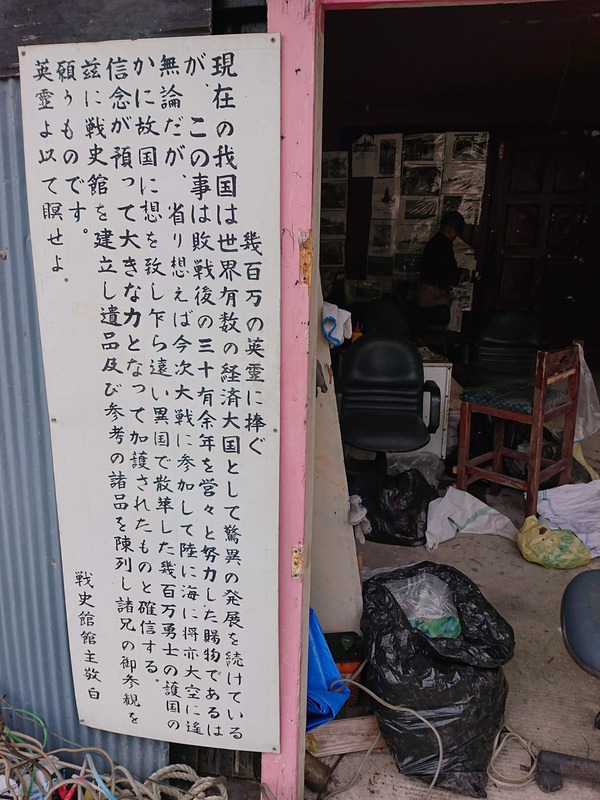 幾百万の英霊に捧ぐ
現在の我国は世界有数の経済大国として驚異の発展を続けている
が、この事は敗戦後の三十有余年を営々と努力した賜物であるは
無論だが、省り想えば今次大戦に参加して陸に海に将亦大空に遙
かに故国に想を致し乍ら遠い異国で散華した幾百万勇士の護国の
信念が預って大きな力となって加護されたものと確信する。
茲に戦史館を建立し遺品及び参考の諸品を陳列し諸兄の御参観を
願うものです。
英靈よ以て瞑せよ。
戦史館館主敬白